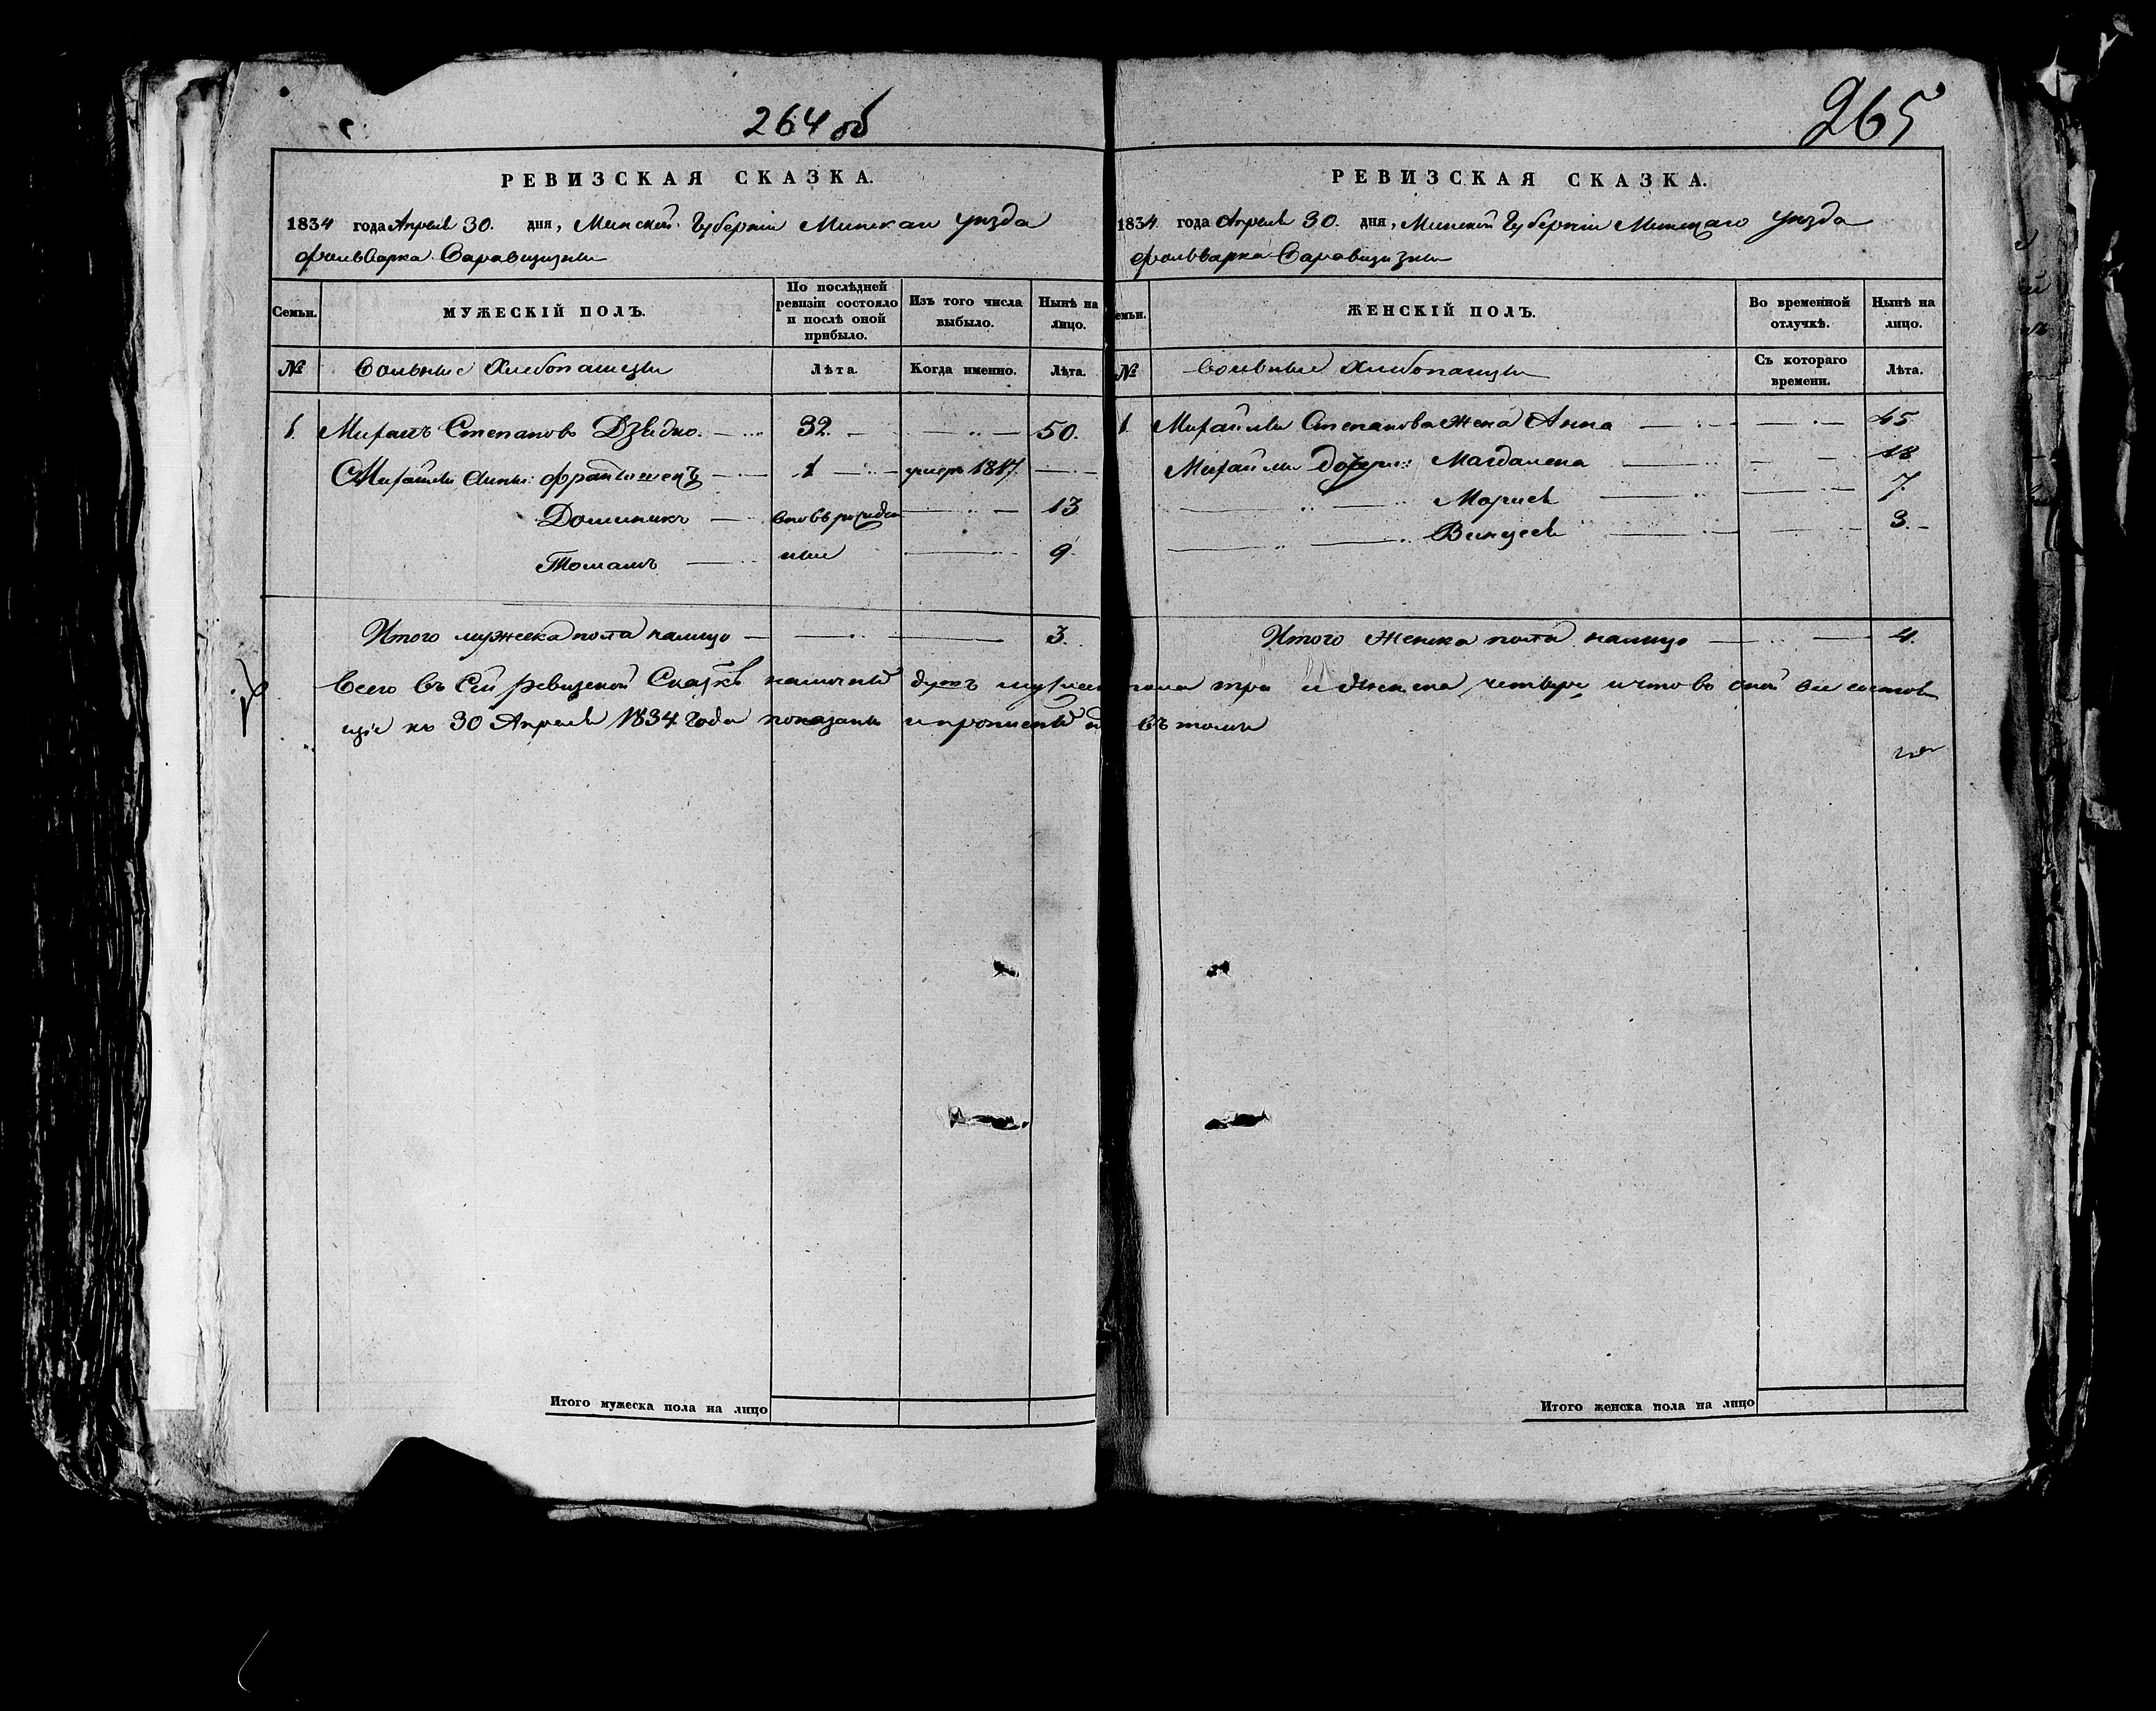 264 об
РЕВИЗСКАЯ СКАЗКА.
1834 года Апреля 30. дня, Минской Губерніи Минскаго Уезда
фольварка
Семьи.
МУЖЕСКІЙ ПОЛЪ.
По послѣдней ревизіи состояло и послѣ оной прибыло.
Изъ того числа выбыло.
Нынѣ на лицо.
№
Вольные Хлебопашцы
Лѣта.
Когда именно.
Лѣта.
1. Михаилъ Степановъ Дзедко. 32. 50.
Михайлы сыны: Францишекъ 1 умеръ 1817.
Доминикъ вновь рожден 13
Томашъ ные 9
Итого мужеска пола налицо 3.
Всего въ сей ревизской Сказке наличныхъ душъ мужеска пола три и женска четыре, и что во оной все состоя
щіе къ 30 Апреля 1834 Года показаны и прописныхъ
Итого мужеска пола на лицо
265
РЕВИЗСКАЯ СКАЗКА.
1834 года Апреля 30. дня, Минской Губерніи Минскаго Уезда
фольварка
емьи.
ЖЕНСКІЙ ПОЛЪ.
Во временной отлучкѣ.
Нынѣ на лицо.
№
Вольные Хлебопашцы
Съ котораго времени.
Лѣта.
1 Михайлы Степанова жена Анна 45
Михайлы дочери: Магдалена 18
Марися 7.
Винцеся 3.
Итого женска пола налицо 4.
Итого женска пола на лицо